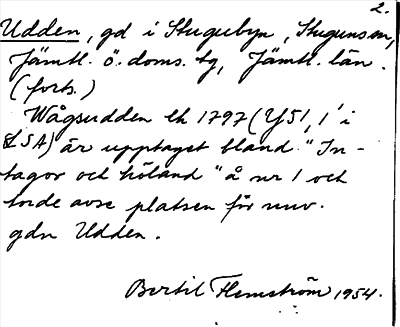 2.
Udden, gd i Stugubyn, Stuguns sn,
Jämtl. ö. doms. tg, Jämtl. län.
(forts.)
Vågsudden lh 1797 (Y51, 1' i
LSA) är upptaget bland "In-
tagor och höland" å nr 1 och
torde avse platsen för nuv.
gdn Udden.
Bertil Flemström 1954.